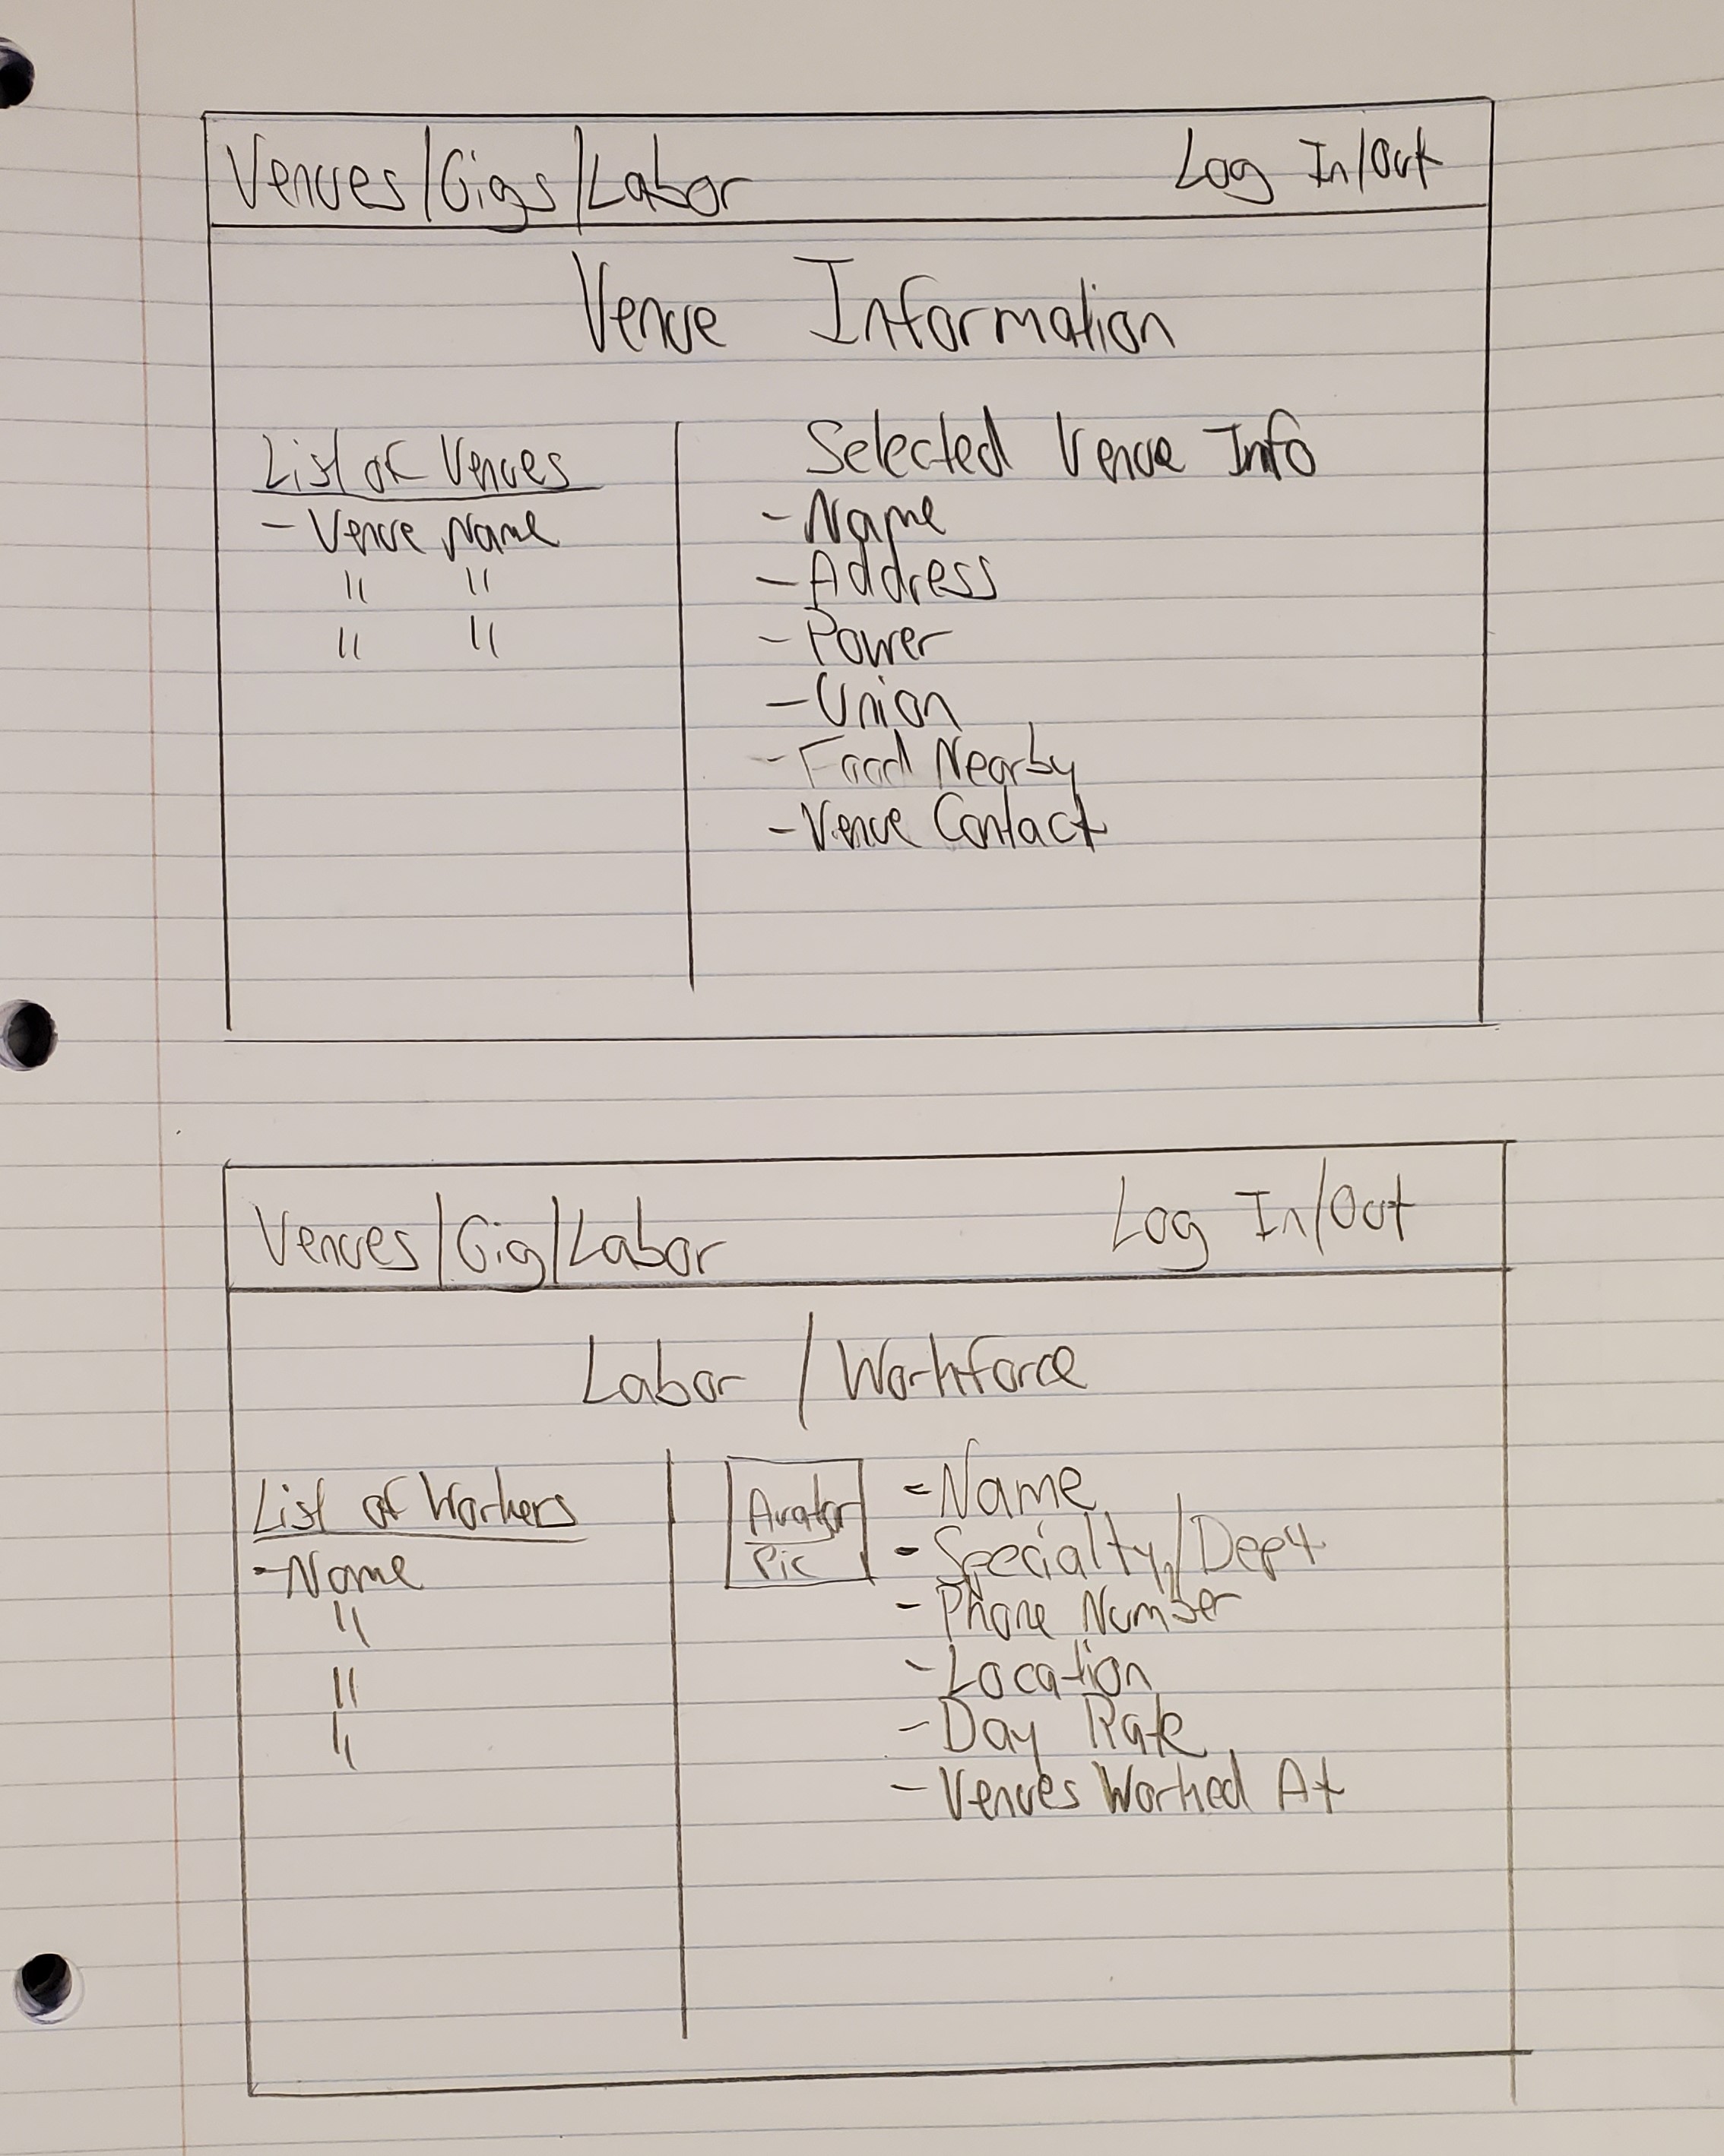 Venues/Gigs/Labor Log In/Out
Venue Information
List of Venues
- Venue Name
" "
" "
Selected Venue Info
- Name
- Address
- Power
- Union
- Food Nearby
- Venue Contact
Venues/Gig/Labor Log In/Out
Labor / Workforce
List of Workers
- Name
"
"
"
Avatar
Pic
- Name
- Specialty/Dept
- Phone Number
- Location
- Day Rate
- Venues Worked At